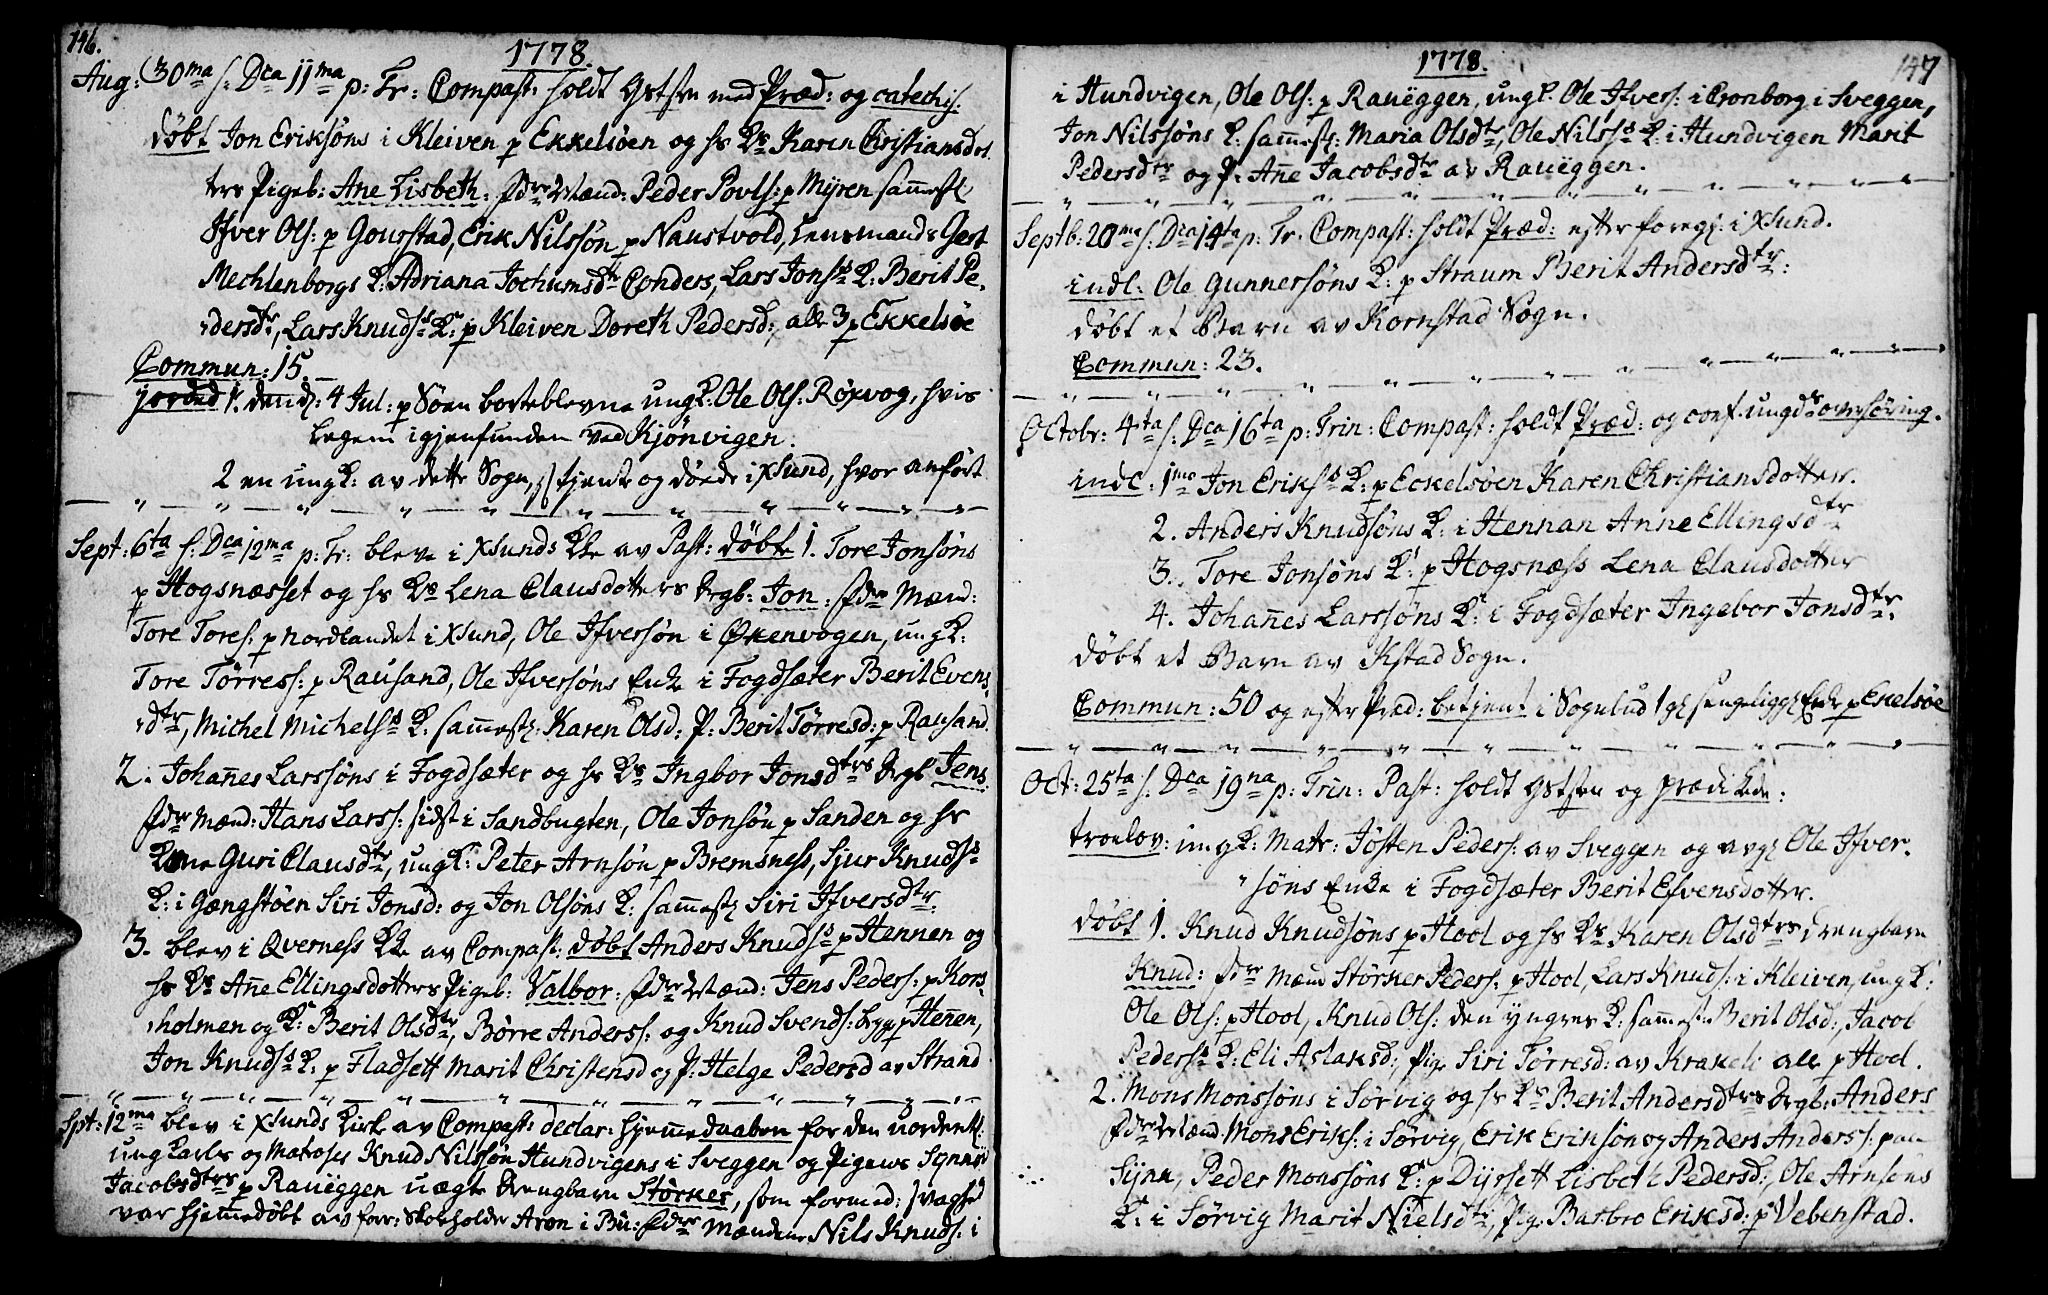 146.
1778.
Aug: 30ma s: Dca 11ma p: Tr: Compast: holdt Gstsen med Præd: og catechis:
døbt Jon Eriksøns i Kleiven p Ekkelsöen og hs Ks Karen Christiansdot
ters Pigeb: Ane Lisbeth: Fdre Mænd: Peder Povls: p Myren sammest
Ifver Ols: p Gourstad, Erik Nilssøn p Naustvold, Lensmands Gert
Mechlenborgs K: Adriana Jochumsdtr Conders, Lars Jonss K: Berit Pe-
dersdtr, Lars Knudss K: p Kleiven Doreth Pedersd: alle 3 p Ekkelsöe
Commun: 15.
jorded 1. dend: 4 Jul: p Söen borteblevne ungK: Ole Ols: Röxvog, hvis
Legem igjenfunden ved Kjönvigen.
2 en ungK: av dette Sogn, tjente og döde i Xsund, hvor anfört
Sept: 6ta s: Dca 12ma p: Tr: bleve i Xsunds Kke av Past: døbte 1. Tore Jonsøns
p Hogsnæsset og hs Ks Lena Clausdotters Drgb: Jon: Fdre Mænd:
Tore Tores: p Nordlandet i Xsund, Ole Ifversøn i Ökenvogen, ungK:
Tore Törress: p Rausand, Ole Ifversøns Enke i Fogdsæter Berit Evens
dtr, Michel Michelss K: sammest: Karen Olsd: P: Berit Törresd: p Rausand.
2. Johannes Larssøns i Fogdsæter og hs Ks Ingbor Jonsdtrs Drgb Jens
Fdre Mænd: Hans Larss: sidst i Sandbugten, Ole Jonsøn p Sanden og hs
Kone Guri Clausdtr, ungK: Peter Arnsøn p Bremsness, Sjur Knudss
K: i Gængstöen Siri Jonsd: og Jon Olsøns K: sammest Siri Ifversdtr:
3. blev i Qverness Kke av Compast: døbt Anders Knudss p Hennen og
hs Ks Anne Ellingsdotters Pigeb: Valbor: Fdre Mænd: Jens Peders: p Kors
holmen og K: Berit Olsdtr, Börre Anderss: og Knud Svends: begge p Henen,
Jon Knudss K: p Fladsett Marit Christensd og P: Helge Pedersd av Strand
Spt: 12ma blev i Xsunds Kirke av Compast: declar: hjemmedaaben for den uordentl:
ung Karls og Matroses Knud Nilssøn Hundvigens i Sveggen og Pigens Synnöv
Jacobsdtrs p Raueggen uægte Drengbarn Störker, som formed: svaghed
var hjemmedøbt av forr: Skoeholder Aron i Bu: Fdre Mændene Nils Knuds: i
147
1778.
i Hundvigen, Ole Ols: p Raueggen, ungK: Ole Ifvers: i Cronborg i Sveggen,
Jon Nilssøns K: sammest: Maria Olsdtr, Ole Nilss K: i Hundvigen Marit
Pedersdtr og P: Anne Jacobsdtr av Raueggen.
Septb: 20ma s: Dca 14ta p: Tr: Compast: holdt Præd: efter foreg: i Xsund.
indl: Ole Gunnersøns K: p Straum Berit Andersdtr:
døbt et Barn av Kornstad Sogn.
Commun: 23.
Octobr: 4ta s: Dca 16ta p: Trin: Compast: holdt Præd: og conf. ungds overhöring.
indl: 1mo Jon Erikss K: p Eckelsöen Karen Christiansdotter.
2. Anders Knudsøns K: i Hennan Anne Ellingsdtr
3. Tore Jonsøns K: p Hogsnæss Lena Clausdotter
4. Johannes Larssøns K: i Fogdsæter Ingebor Jonsdtr.
døbt et Barn av Kstad Sogn.
Commun: 50 og efter Præd: betjent i Sognebud 1 sengeligg: Enke p Ekelsöe
Oct: 25ta s: Dca 19na p: Trin: Past: holdt Gstsen og prædikede:
troelov: ungK: Matr: Jösten Peders: av Sveggen og avg Ole Ifver-
søns Enke i Fogdsæter Berit Efvensdotter.
døbt 1. Knud Knudsøns p Hool og hs Ks Karen Olsdtrs Drengbarn
Knud: Fdre Mænd Störker Peders: p Hool, Lars Knuds: i Kleiven, ungK:
Ole Ols: p Hool, Knud Ols: den yngres K: sammest: Berit Olsd:, Jacob
Pederss K: Eli Aslaksd:, Pige Siri Törresd: av Krakeli alle p Hool.
2. Mons Monssøns i Sörvig og hs Ks Berit Andersdtrs Drgb: Anders
Fdre Mænd Mons Eriks: i Sörvig, Erik Eriksøn og Anders Anderss: paa
Synn, Peder Monssøns K: p Dyrsett Lisbeth Pedersd:, Ole Arnsøns
K: i Sörvig Marit Nielsdtr, Pig: Barbro Eriksd: p Vebenstad.